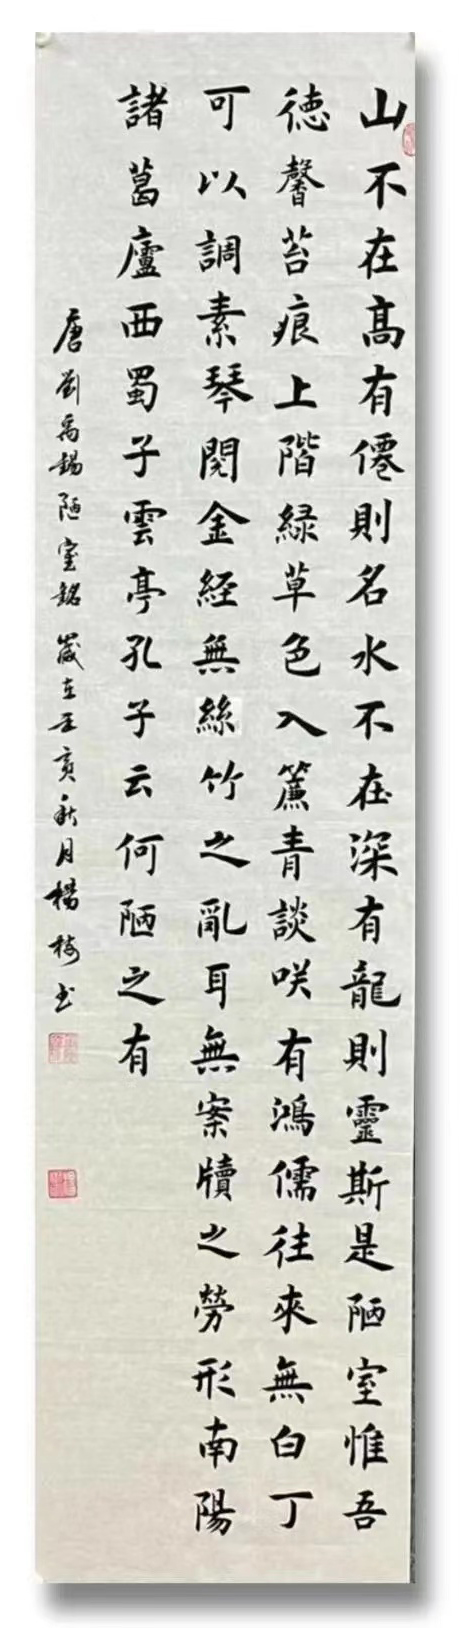 山不在高有僊則名水不在深有龍則靈斯是陋室惟吾
德馨苔痕上階綠草色入簾青談咲有鴻儒往來無白丁
可以調素琴閱金經無絲竹之亂耳無案牘之勞形南陽
諸葛廬西蜀子雲亭孔子云何陋之有
唐劉禹錫陋室銘歲在亥秋月楊梅書